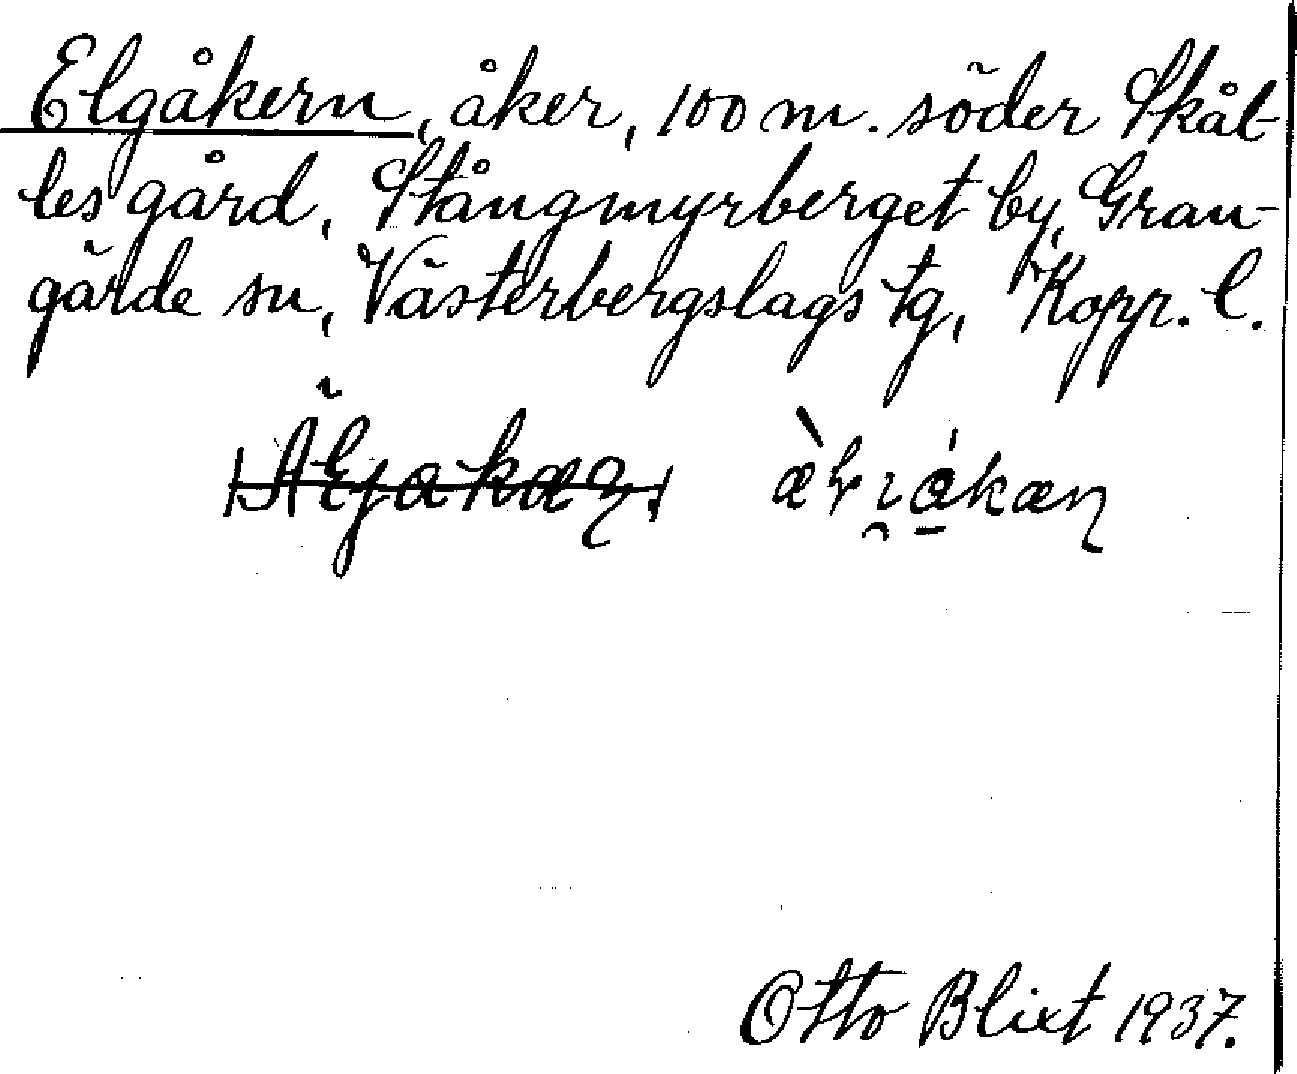 Elgåkern, åker, 100 m. söder Skål-
les gård, Stångmyrberget by, Gran-
gärde sn, Västerbergslags tg, Kopp. l.
Otto Blixt 1937.